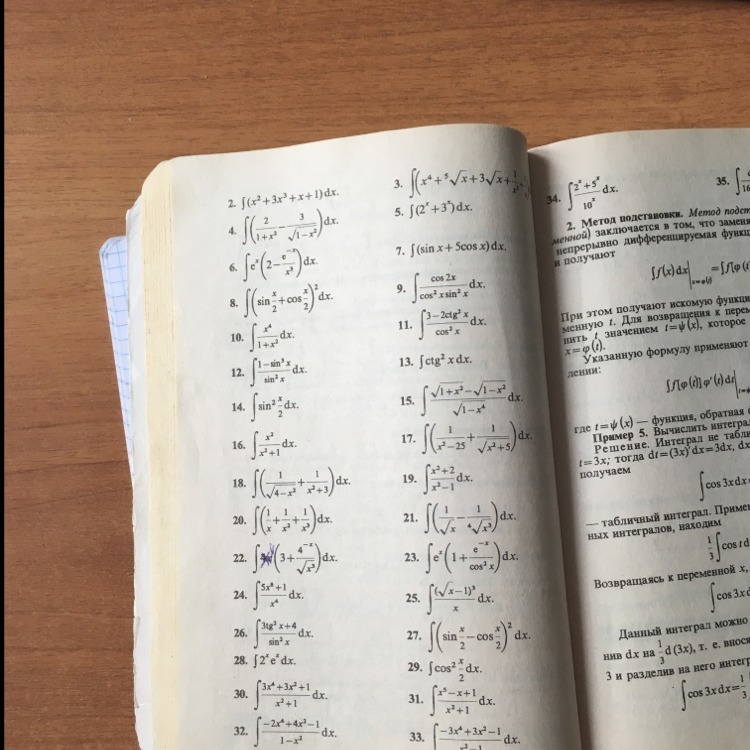 2. ∫(x²+3x³+x+1)dx.
3. ∫(x⁴+⁵√x+3√x+1/x²
4. ∫(2/(1+x²)−3/√(1−x²))dx.
5. ∫(2ˣ+3ˣ)dx.
6. ∫eˣ(2−e⁻ˣ/x³)dx.
7. ∫(sin x+5cos x)dx.
8. ∫(sin x/2+cos x/2)²dx.
9. ∫cos 2x/(cos² x sin² x) dx.
10. ∫x⁴/(1+x²) dx.
11. ∫(3−2ctg² x)/cos² x dx.
12. ∫(1−sin³ x)/sin² x dx.
13. ∫ctg² x dx.
14. ∫sin² x/2 dx.
15. ∫(√(1+x²)−√(1−x²))/√(1−x⁴) dx.
16. ∫x²/(x²+1) dx.
17. ∫(1/(x²−25)+1/√(x²+5))dx.
18. ∫(1/√(4−x²)+1/(x²+3))dx.
19. ∫(x²+2)/(x²−1) dx.
20. ∫(1/x+1/x²+1/x³)dx.
21. ∫(1/√x−1/⁴√x³)dx.
22. ∫(3+4⁻ˣ/√x³)dx.
23. ∫eˣ(1+e⁻ˣ/cos² x)dx.
24. ∫(5x⁸+1)/x⁴ dx.
25. ∫(√x−1)³/x dx.
26. ∫(3tg² x+4)/sin² x dx.
27. ∫(sin x/2−cos x/2)² dx.
28. ∫2ˣeˣ dx.
29. ∫cos² x/2 dx.
30. ∫(3x⁴+3x²+1)/(x²+1) dx.
31. ∫(x⁵−x+1)/(x²+1) dx.
32. ∫(−2x⁴+4x²−1)/(1−x²) dx.
33. ∫(−3x⁴+3x²−1)/(x²−1) dx.
34. ∫(2ˣ+5ˣ)/10ˣ dx.
35.
2. Метод подстановки. Метод подст
менной) заключается в том, что заменя
непрерывно дифференцируемая функц
и получают
∫f(x)dx|x=φ(t) =∫f[φ(t
При этом получают искомую функци
менную t. Для возвращения к перем
нить t значением t=ψ(x), которое
x=φ(t).
Указанную формулу применяют
лении:
∫f[φ(t)]φ′(t)dt|t=
где t=ψ(x) — функция, обратная
Пример 5. Вычислить интеграл
Решение. Интеграл не табли
t=3x; тогда dt=(3x)′dx=3dx, dx
получаем
∫cos 3x dx=
— табличный интеграл. Приме
ных интегралов, находим
1/3∫cos t d
Возвращаясь к переменной x,
∫cos 3x d
Данный интеграл можно
нив dx на 1/3 d(3x), т. е. внося
3 и разделив на него интегр
∫cos 3x dx=1/3